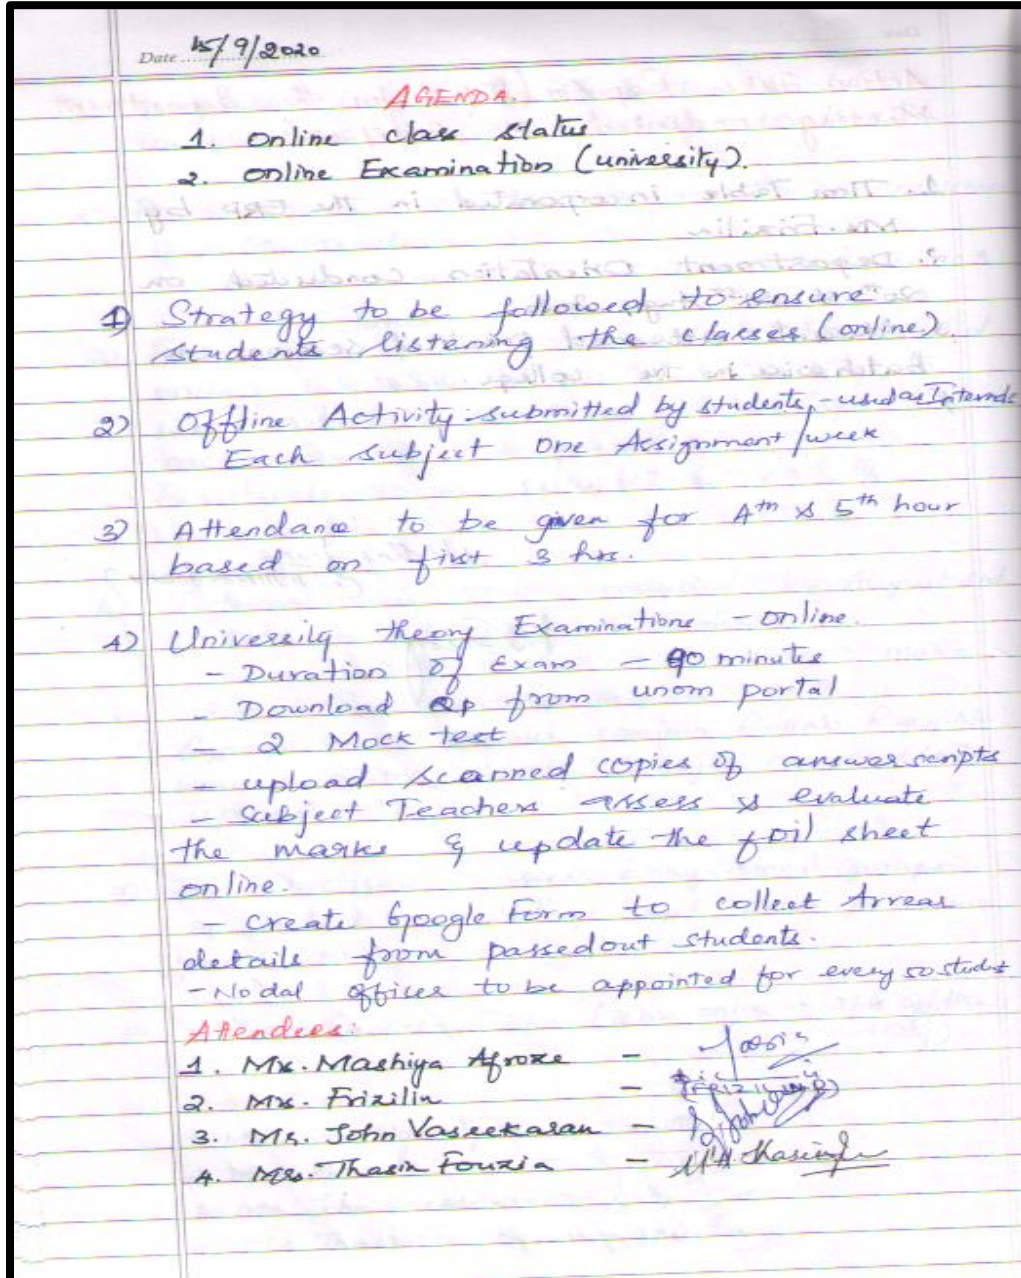 Date 15/9/2020
AGENDA.
1. Online class status
2. Online Examination (university).
1) Strategy to be followed to ensure
students listening the classes (online)
2) Offline Activity submitted by students, - used as Internals
Each subject one Assignment/week
3) Attendance to be given for 4th & 5th hour
based on first 3 hrs.
4) University theory Examinations - online.
- Duration of Exam - 90 minutes
- Download QP from unom portal
- 2 Mock test
- upload scanned copies of answer scripts
- Subject Teachers assess & evaluate
the marks & update the foil sheet
online.
- create Google Form to collect Arrear
details from passedout students.
- Nodal officer to be appointed for every 50 students
Attendees:
1. Mrs. Mashiya Afroze -
2. Mrs. Frizilin - (FRIZILIN)
3. Mr. John Vaseekaran -
4. Mrs. Thasin Fouzia -